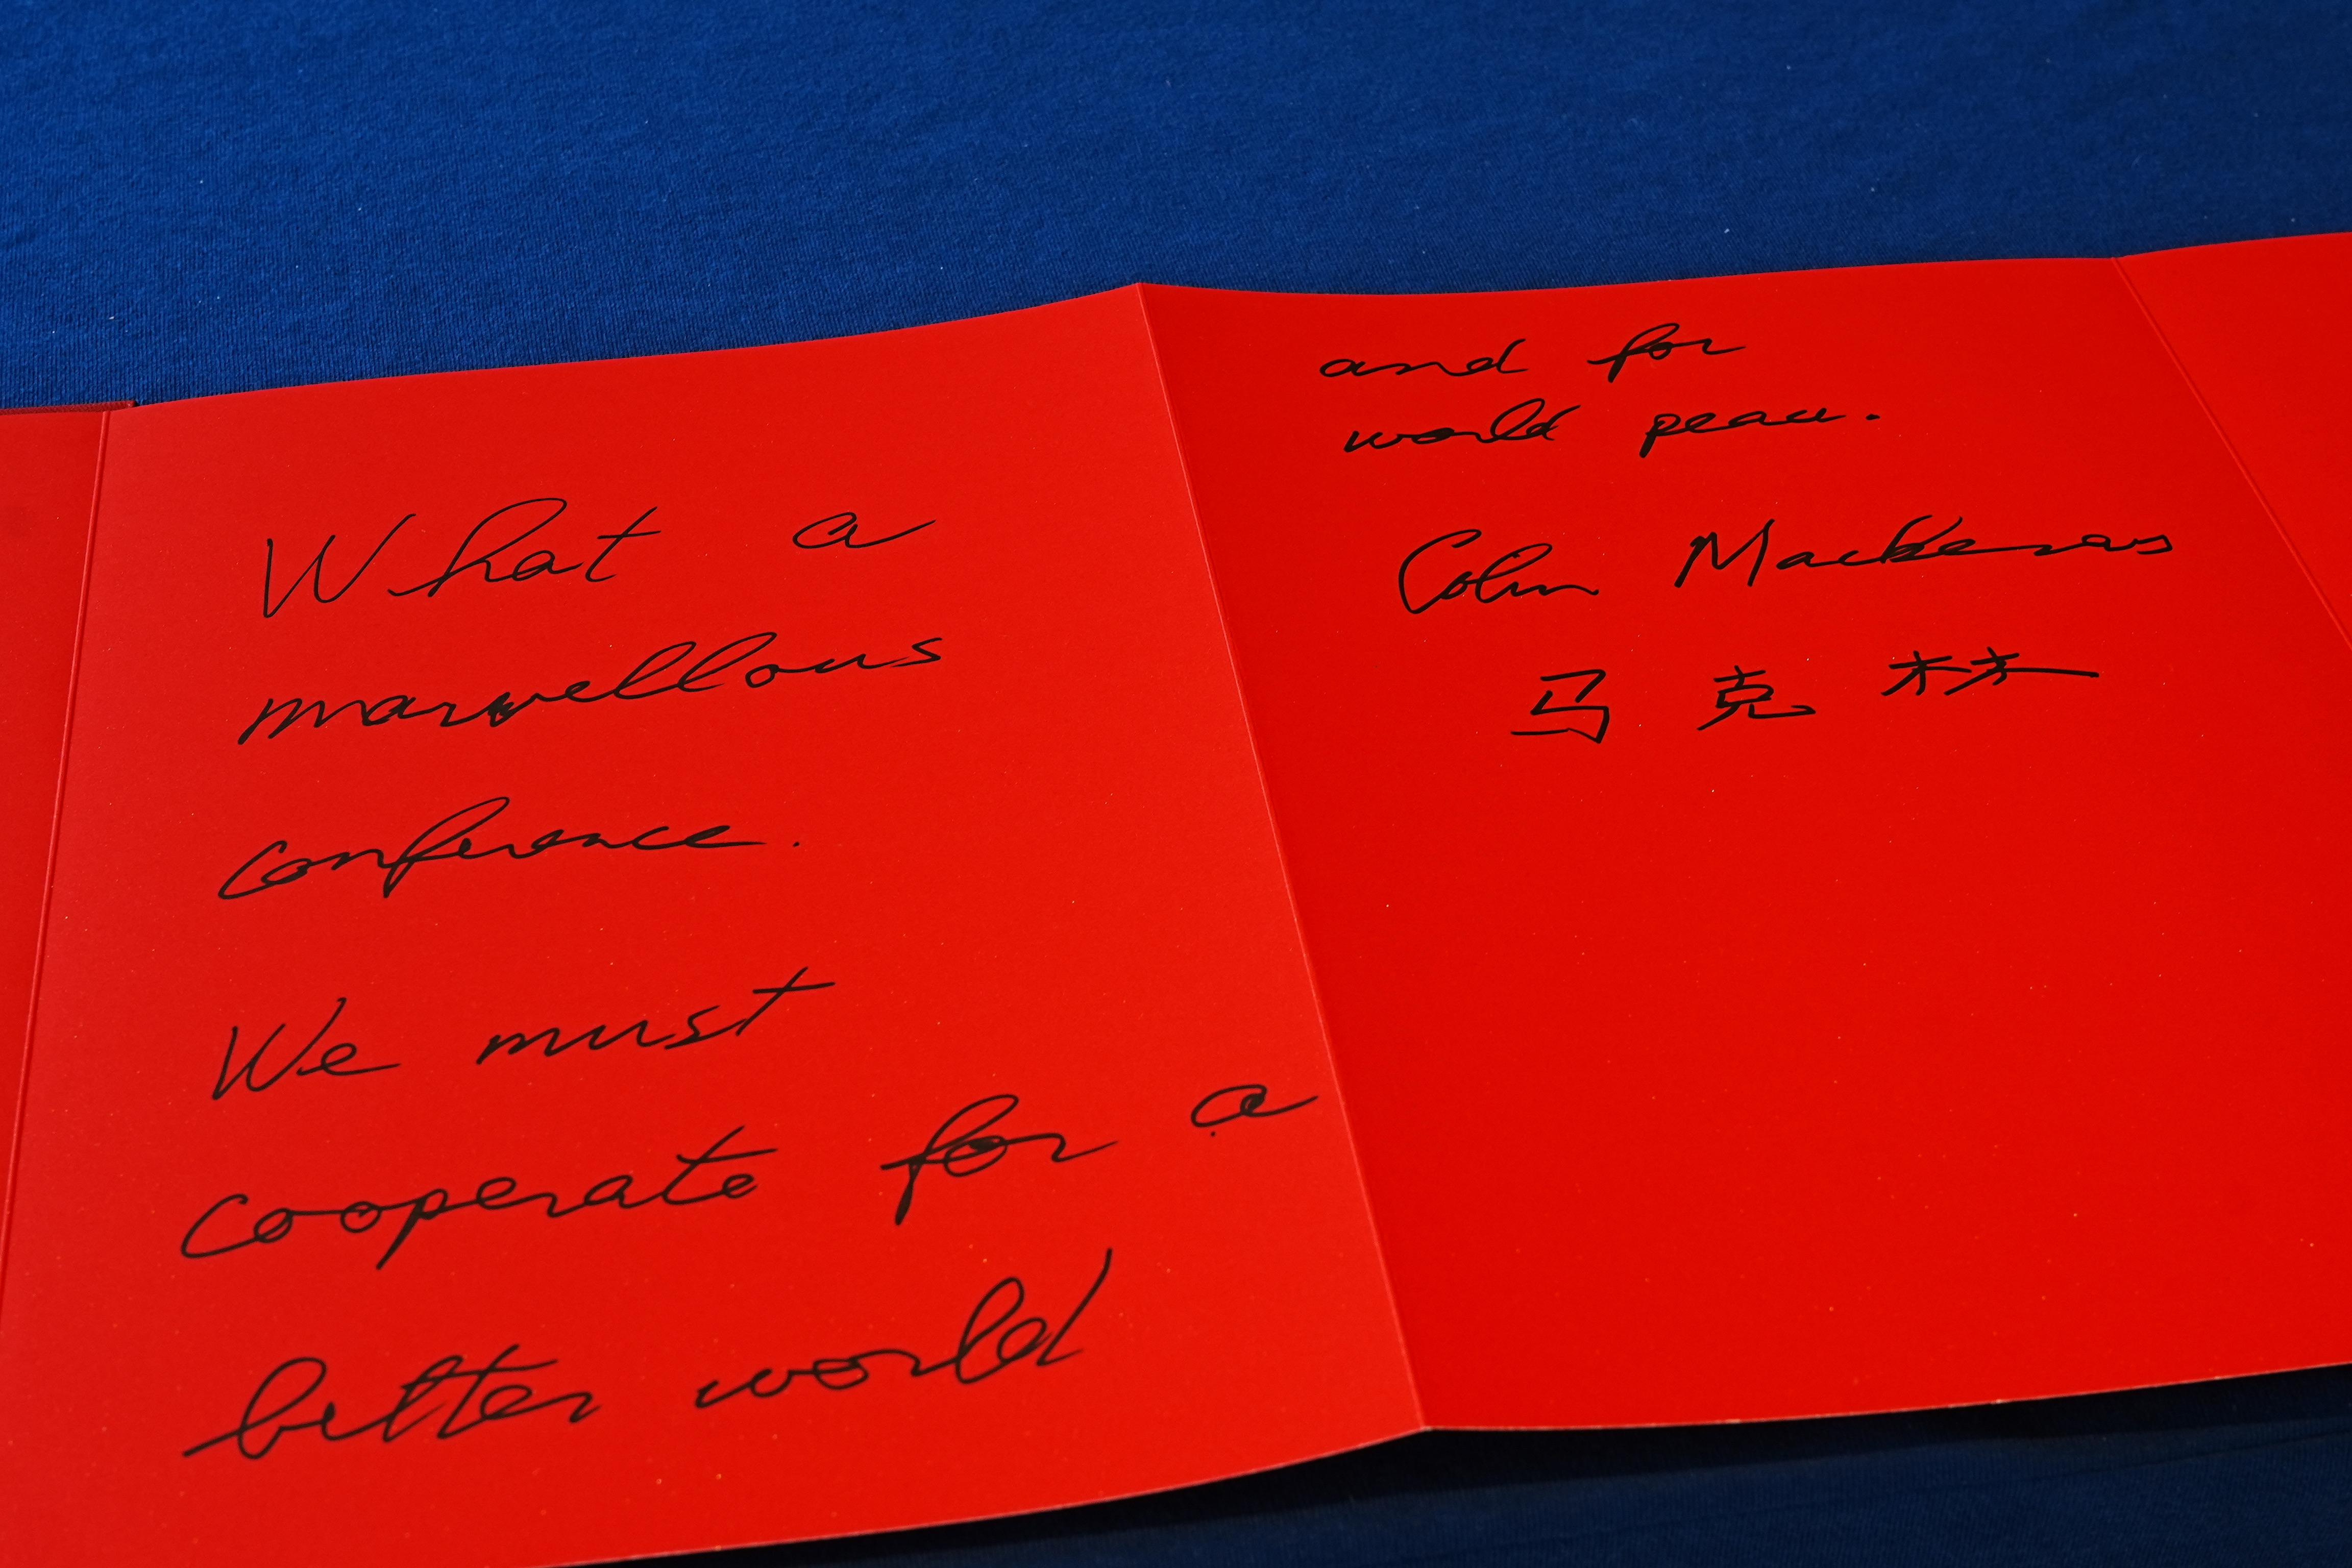 What a
marvellous
conference.
We must
cooperate for a
better world
and for
world peace.
Colin Mackerras
马克林